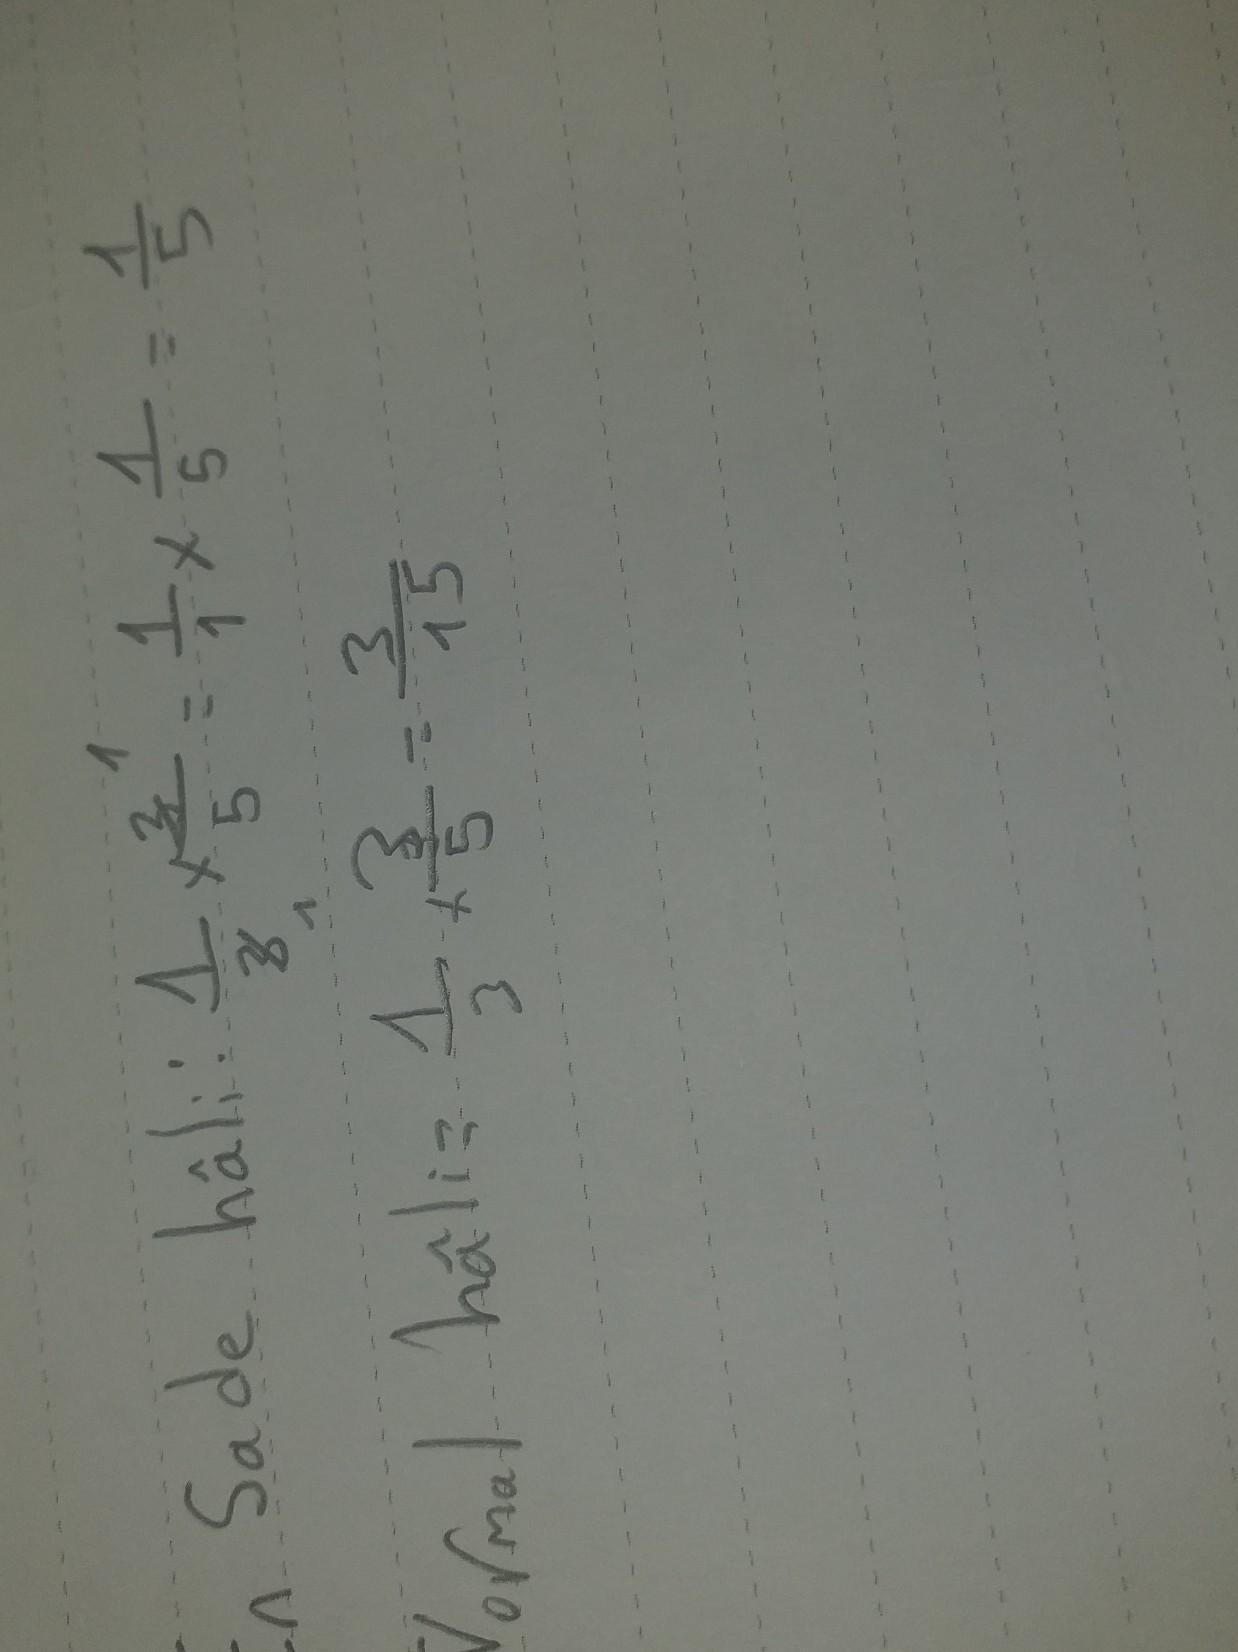 En Sade hâli: 1/3 1 x 3/5 1 = 1/1 x 1/5 = 1/5
Normal hâli= 1/3 x 3/5 = 3/15